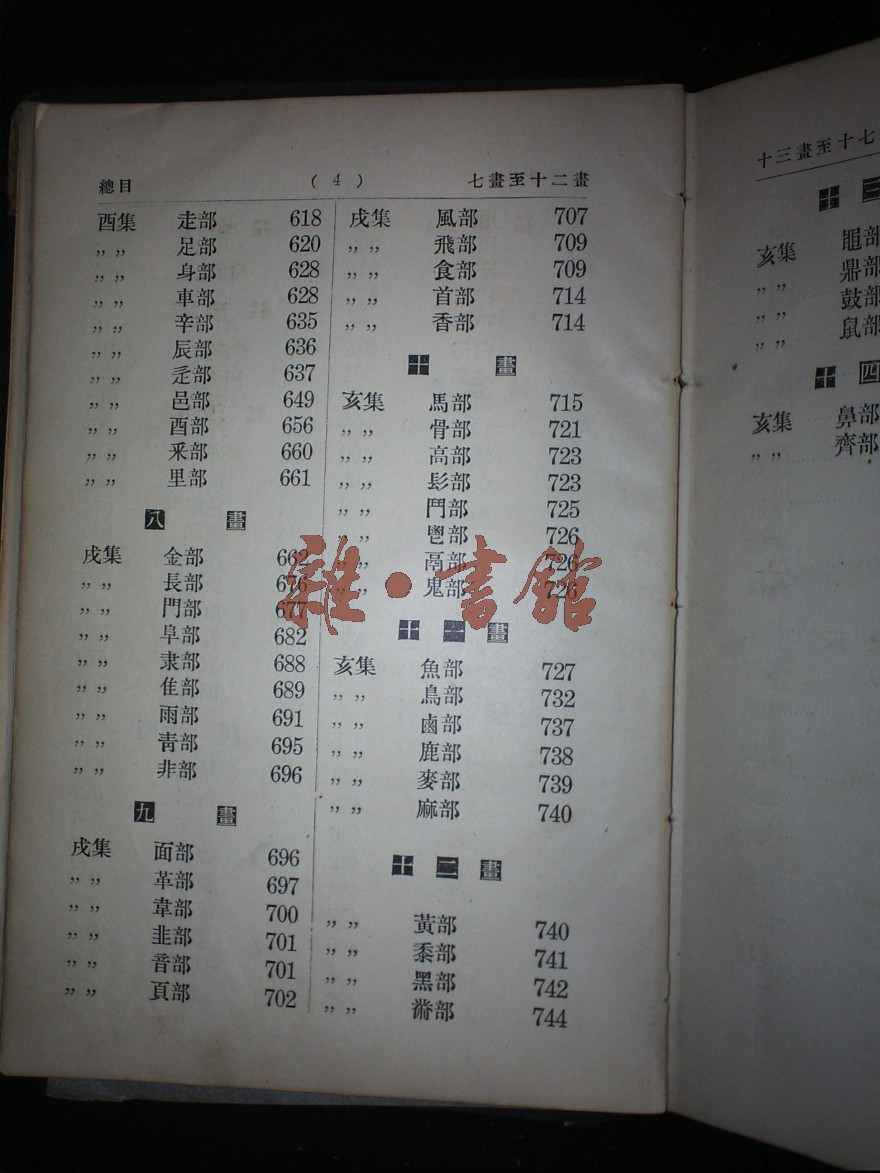 總目 ( 4 ) 七畫至十二畫
酉集 走部 618
〃〃 足部 620
〃〃 身部 628
〃〃 車部 628
〃〃 辛部 635
〃〃 辰部 636
〃〃 辵部 637
〃〃 邑部 649
〃〃 酉部 656
〃〃 釆部 660
〃〃 里部 661
八畫
戌集 金部 662
〃〃 長部 676
〃〃 門部 677
〃〃 阜部 682
〃〃 隶部 688
〃〃 隹部 689
〃〃 雨部 691
〃〃 靑部 695
〃〃 非部 696
九畫
戌集 面部 696
〃〃 革部 697
〃〃 韋部 700
〃〃 韭部 701
〃〃 音部 701
〃〃 頁部 702
戌集 風部 707
〃〃 飛部 709
〃〃 食部 709
〃〃 首部 714
〃〃 香部 714
十畫
亥集 馬部 715
〃〃 骨部 721
〃〃 高部 723
〃〃 髟部 723
〃〃 鬥部 725
〃〃 鬯部 726
〃〃 鬲部 726
〃〃 鬼部 726
十一畫
亥集 魚部 727
〃〃 鳥部 732
〃〃 鹵部 737
〃〃 鹿部 738
〃〃 麥部 739
〃〃 麻部 740
十二畫
〃〃 黃部 740
〃〃 黍部 741
〃〃 黑部 742
〃〃 黹部 744
雜·書館
十三畫至十七
十三
亥集 黽部
〃〃 鼎部
〃〃 鼓部
〃〃 鼠部
十四
亥集 鼻部
〃〃 齊部